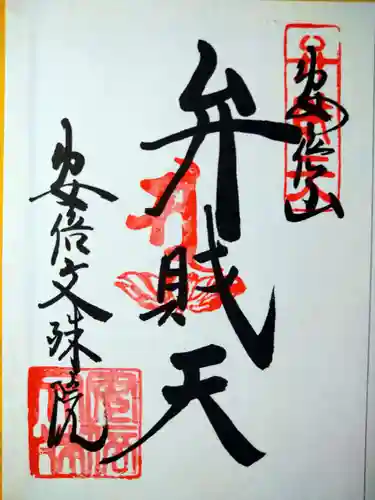 安倍山
弁賊天
安倍文殊院